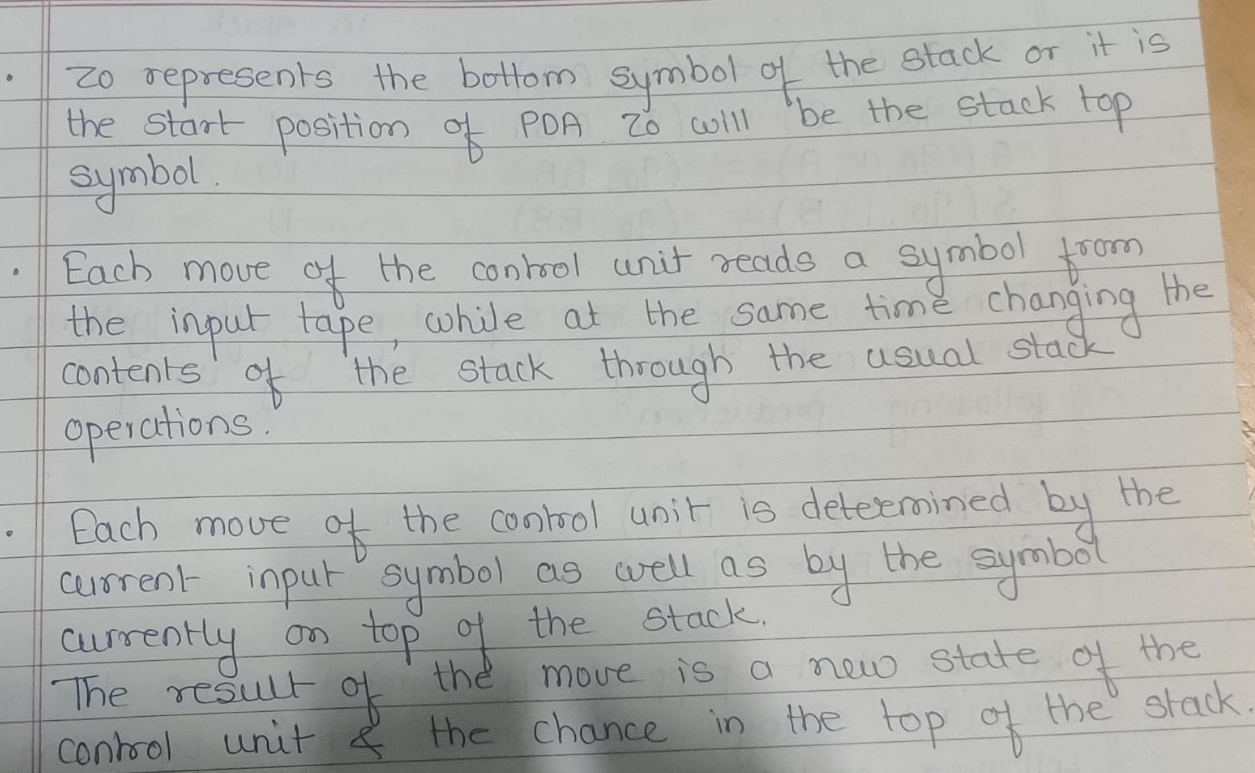 • Z0 represents the bottom symbol of the stack or it is
the start position of PDA Z0 will be the stack top
symbol.
• Each move of the control unit reads a symbol from
the input tape, while at the same time changing the
contents of the stack through the usual stack
operations.
• Each move of the control unit is determined by the
current input symbol as well as by the symbol
currently on top of the stack.
The result of the move is a new state of the
control unit & the chance in the top of the stack.